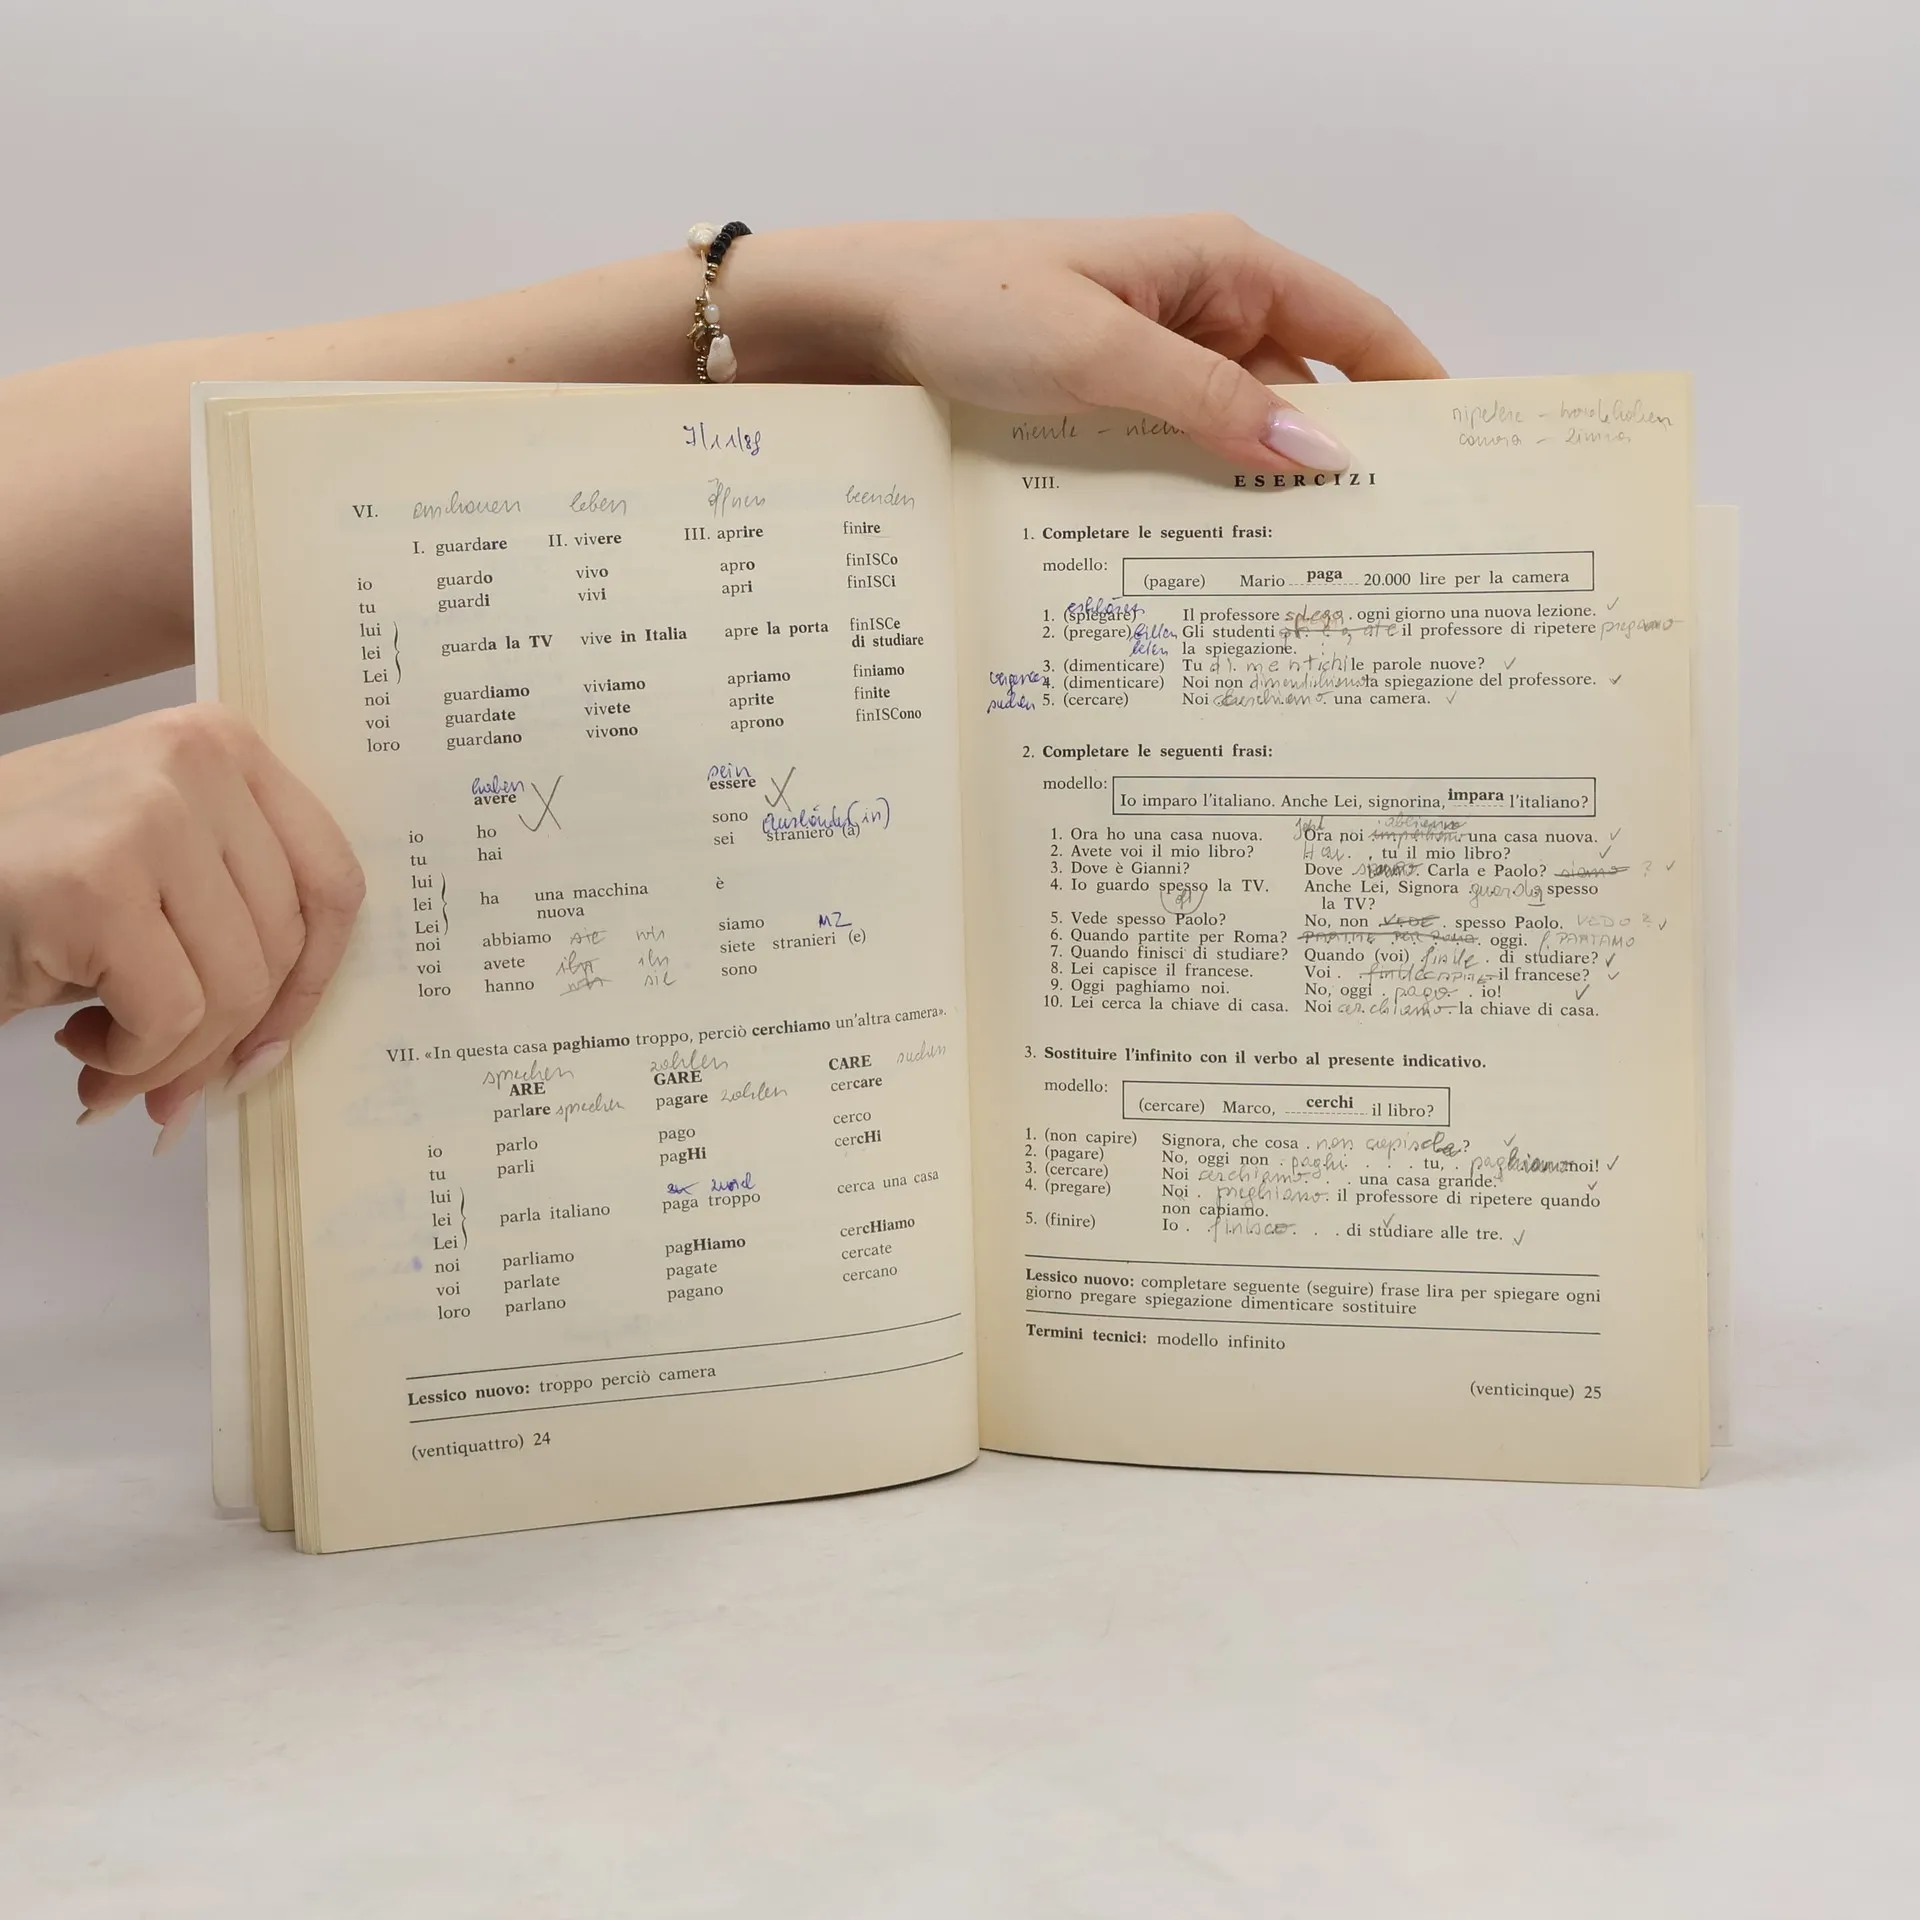 VI. anschauen leben öffnen beenden
I. guardare II. vivere III. aprire finire
io guardo vivo apro finISCo
tu guardi vivi apri finISCi
lui
lei guarda la TV vive in Italia apre la porta finISCe di studiare
Lei
noi guardiamo viviamo apriamo finiamo
voi guardate vivete aprite finite
loro guardano vivono aprono finISCono
haben sein
avere essere
io ho sono
tu hai sei straniero (a)
lui
lei ha una macchina nuova è
Lei
noi abbiamo sie wir siamo MZ
voi avete ihr ihr siete stranieri (e)
loro hanno sie sono
VII. «In questa casa paghiamo troppo, perciò cerchiamo un'altra camera».
sprechen zahlen suchen
ARE GARE CARE
parlare sprechen pagare zahlen cercare
io parlo pago cerco
tu parli pagHi cercHi
lui
lei parla italiano paga troppo cerca una casa
Lei
noi parliamo pagHiamo cercHiamo
voi parlate pagate cercate
loro parlano pagano cercano
Lessico nuovo: troppo perciò camera
(ventiquattro) 24
niente -
camera -
VIII. ESERCIZI
1. Completare le seguenti frasi:
modello: (pagare) Mario paga 20.000 lire per la camera
1. (spiegare) Il professore spiega . ogni giorno una nuova lezione.
2. (pregare) Gli studenti il professore di ripetere
la spiegazione.
3. (dimenticare) Tu dimentichi le parole nuove?
4. (dimenticare) Noi non la spiegazione del professore.
suchen 5. (cercare) Noi una camera.
2. Completare le seguenti frasi:
modello: Io imparo l'italiano. Anche Lei, signorina, impara l'italiano?
1. Ora ho una casa nuova. Ora noi una casa nuova.
2. Avete voi il mio libro? Hai . , tu il mio libro?
3. Dove è Gianni? Dove Carla e Paolo? siamo ?
4. Io guardo spesso la TV. Anche Lei, Signora guarda spesso
la TV?
5. Vede spesso Paolo? No, non VEDE . spesso Paolo. VEDO ?
6. Quando partite per Roma? PARTITE PER ROMA . oggi. PARTAMO
7. Quando finisci di studiare? Quando (voi) finite . di studiare?
8. Lei capisce il francese. Voi . CAPITE il francese?
9. Oggi paghiamo noi. No, oggi . pago . io!
10. Lei cerca la chiave di casa. Noi cerchiamo la chiave di casa.
3. Sostituire l'infinito con il verbo al presente indicativo.
modello: (cercare) Marco, cerchi il libro?
1. (non capire) Signora, che cosa . non ?
2. (pagare) No, oggi non . paghi . . . tu, . paghiamo noi!
3. (cercare) Noi cerchiamo . . una casa grande.
4. (pregare) Noi . preghiamo . il professore di ripetere quando
non capiamo.
5. (finire) Io . finisco . . . di studiare alle tre.
Lessico nuovo: completare seguente (seguire) frase lira per spiegare ogni
giorno pregare spiegazione dimenticare sostituire
Termini tecnici: modello infinito
(venticinque) 25